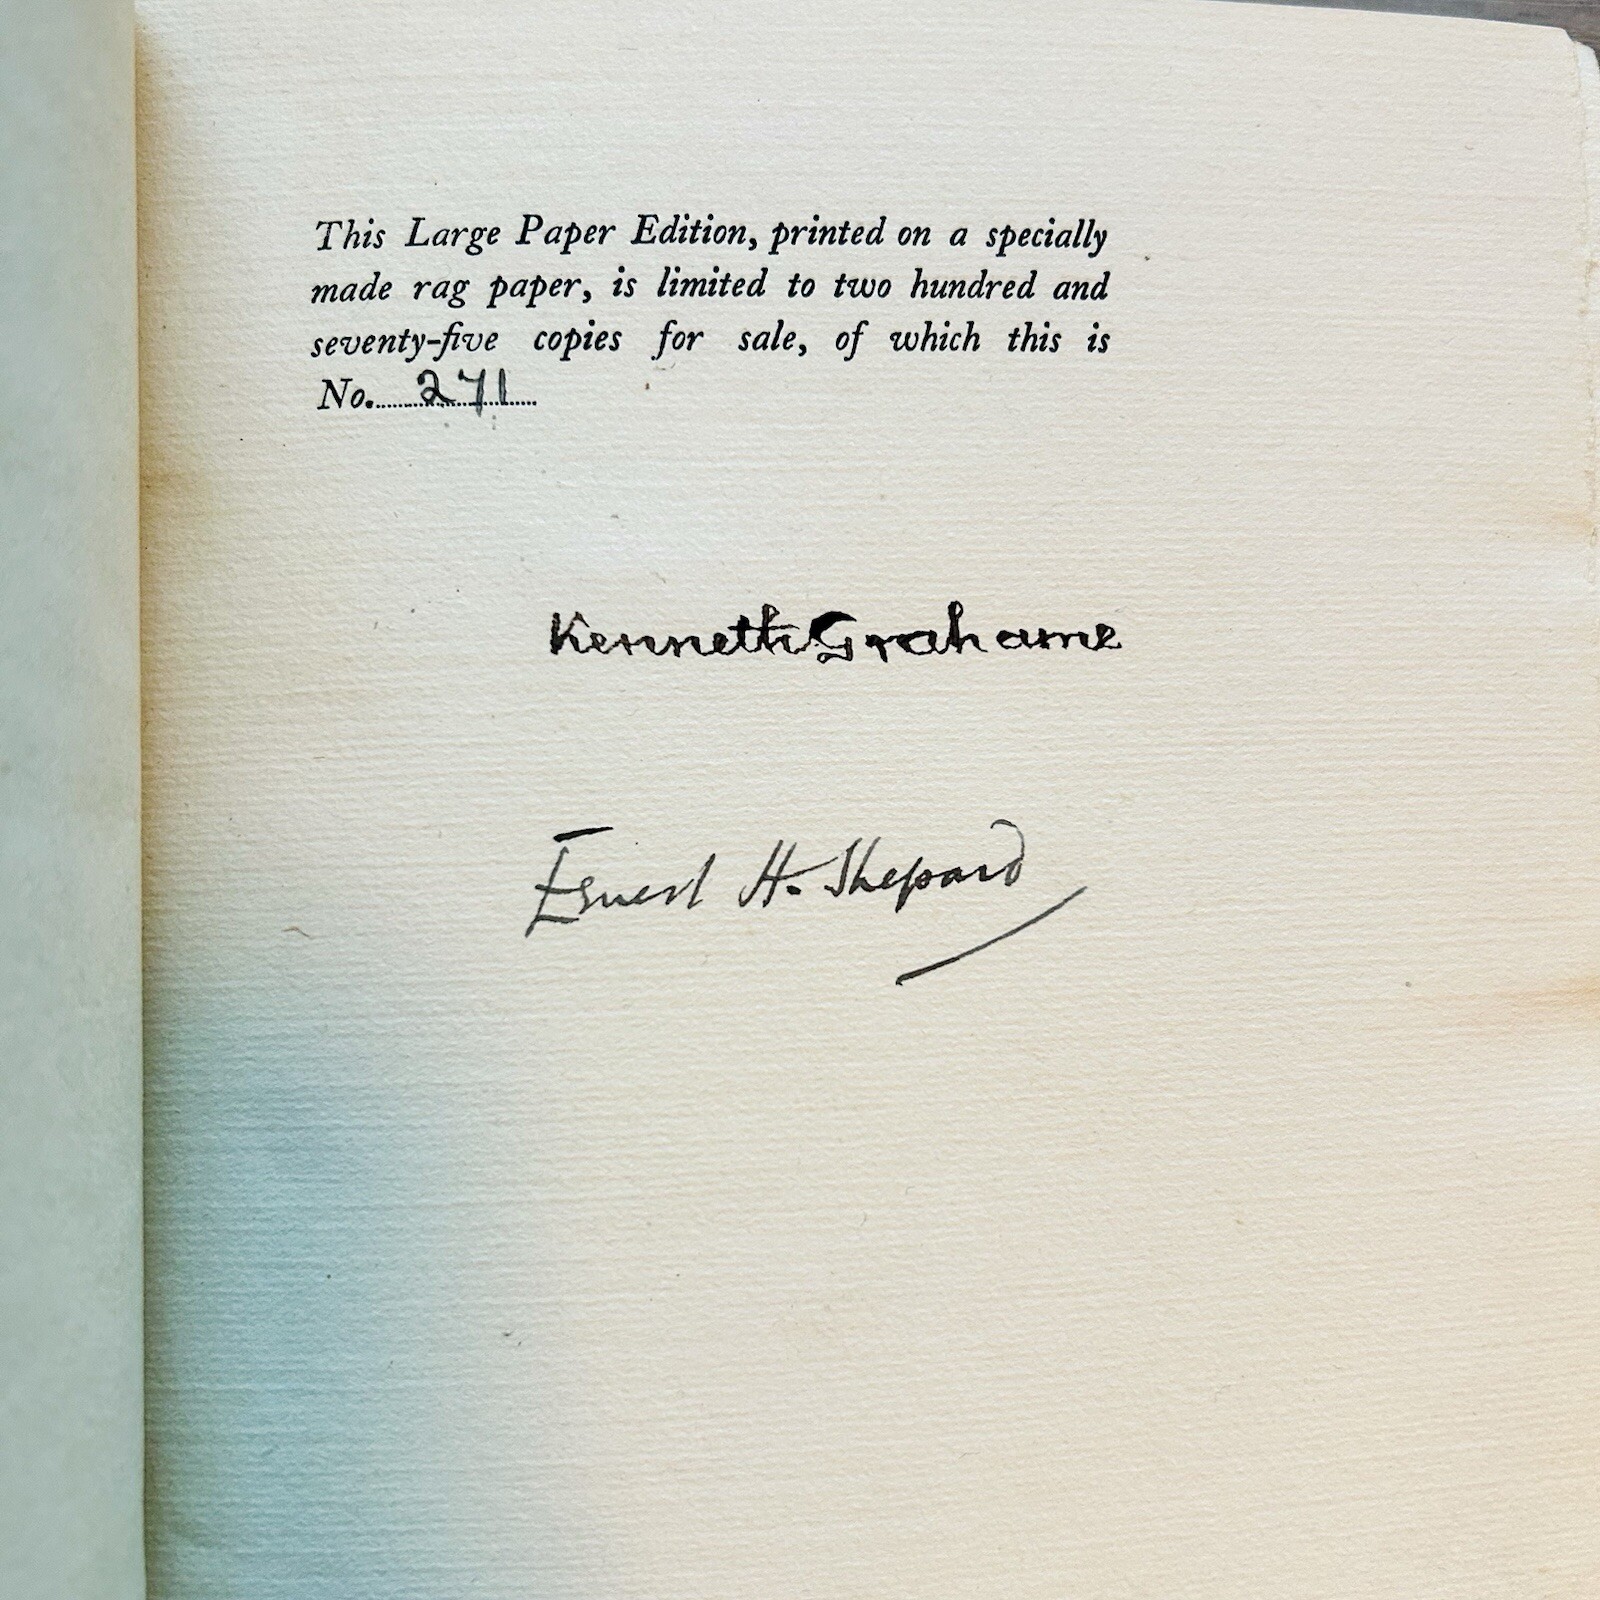 This Large Paper Edition, printed on a specially
made rag paper, is limited to two hundred and
seventy-five copies for sale, of which this is
No. 271
Kenneth Grahame
Ernest H. Shepard